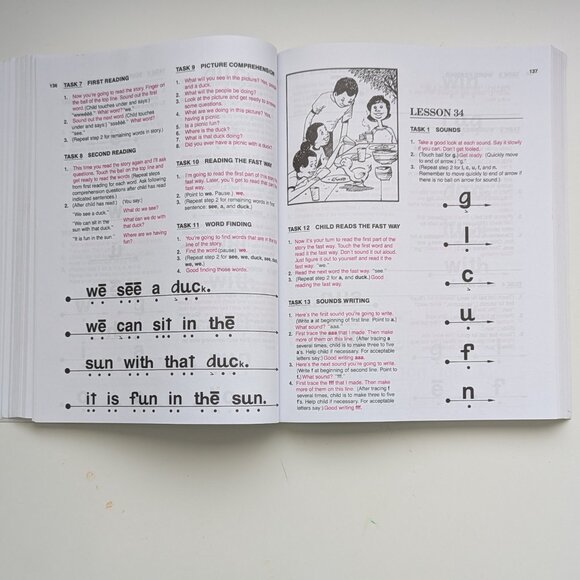 136
TASK 7 FIRST READING
1. Now you're going to read the story. Finger on
the ball of the top line. Sound out the first
word. (Child touches under and says:)
"wwwēēē." What word? "we."
2. Sound out the next word. (Child touches
under and says:) "sssēēē." What word?
"see."
3. (Repeat step 2 for remaining words in story.)
TASK 8 SECOND READING
This time you read the story again and I'll ask
questions. Touch the ball on the top line and
get ready to read the words. (Repeat steps
from first reading for each word. Ask following
comprehension questions after child has read
indicated sentences.)
(After child has read:) (You say:)
"We see a duck." What do we see?
"We can sit in the
sun with that duck." What can we do with
that duck?
"It is fun in the sun." Where are we having
fun?
TASK 9 PICTURE COMPREHENSION
1. What will you see in the picture?
and a duck.
2. What will the people be doing?
3. Look at the picture and get ready to answer
some questions.
4. What are we doing in this picture?
having a picnic.
5. Is a picnic fun?
6. Where is the duck?
7. What is that duck doing?
8. Did you ever have a picnic with a duck?
TASK 10 READING THE FAST WAY
1. I'm going to read the first part of this story the
fast way. Later, you'll get to read this part the
fast way.
2. (Point to we. Pause.) we.
3. (Repeat step 2 for remaining words in first
sentence: see, a, and duck.)
TASK 11 WORD FINDING
1. You're going to find words that are in the top
line of the story.
2. Find the word (pause) we.
3. (Repeat step 2 for see, we, duck, see, duck,
we, we.)
4. Good finding those words.
wē sēē a duck.
wē can sit in thē
sun with that duck.
it is fun in thē sun.
137
LESSON 34
TASK 1 SOUNDS
1. Take a good look at each sound. Say it slowly
if you can. Don't get fooled.
2. (Touch ball for g.) Get ready. (Quickly move
to end of arrow.) "g."
3. (Repeat step 2 for l, c, u, f, and n.
Remember to move quickly to end of arrow if
there is no ball on arrow for sound.)
g
l
c
u
f
n
TASK 12 CHILD READS THE FAST WAY
1. Now it's your turn to read the first part of
the story the fast way. Touch the first word and
read it the fast way. Don't sound it out aloud.
Just figure it out to yourself and read it the
fast way. "we."
2. Read the next word the fast way. "see."
3. (Repeat step 2 for a, and duck.) Good
reading the fast way.
TASK 13 SOUNDS WRITING
1. Here's the first sound you're going to write.
(Write a at beginning of first line. Point to a.)
What sound? "aaa."
2. First trace the aaa that I made. Then make
more of them on this line. (After tracing a
several times, child is to make three to five
a's. Help child if necessary. For acceptable
letters say:) Good writing aaa.
3. Here's the next sound you're going to write.
(Write f at beginning of second line. Point to
f.) What sound? "fff."
4. First trace the fff that I made. Then make
more of them on this line. (After tracing f
several times, child is to make three to five
f's. Help child if necessary. For acceptable
letters say:) Good writing fff.